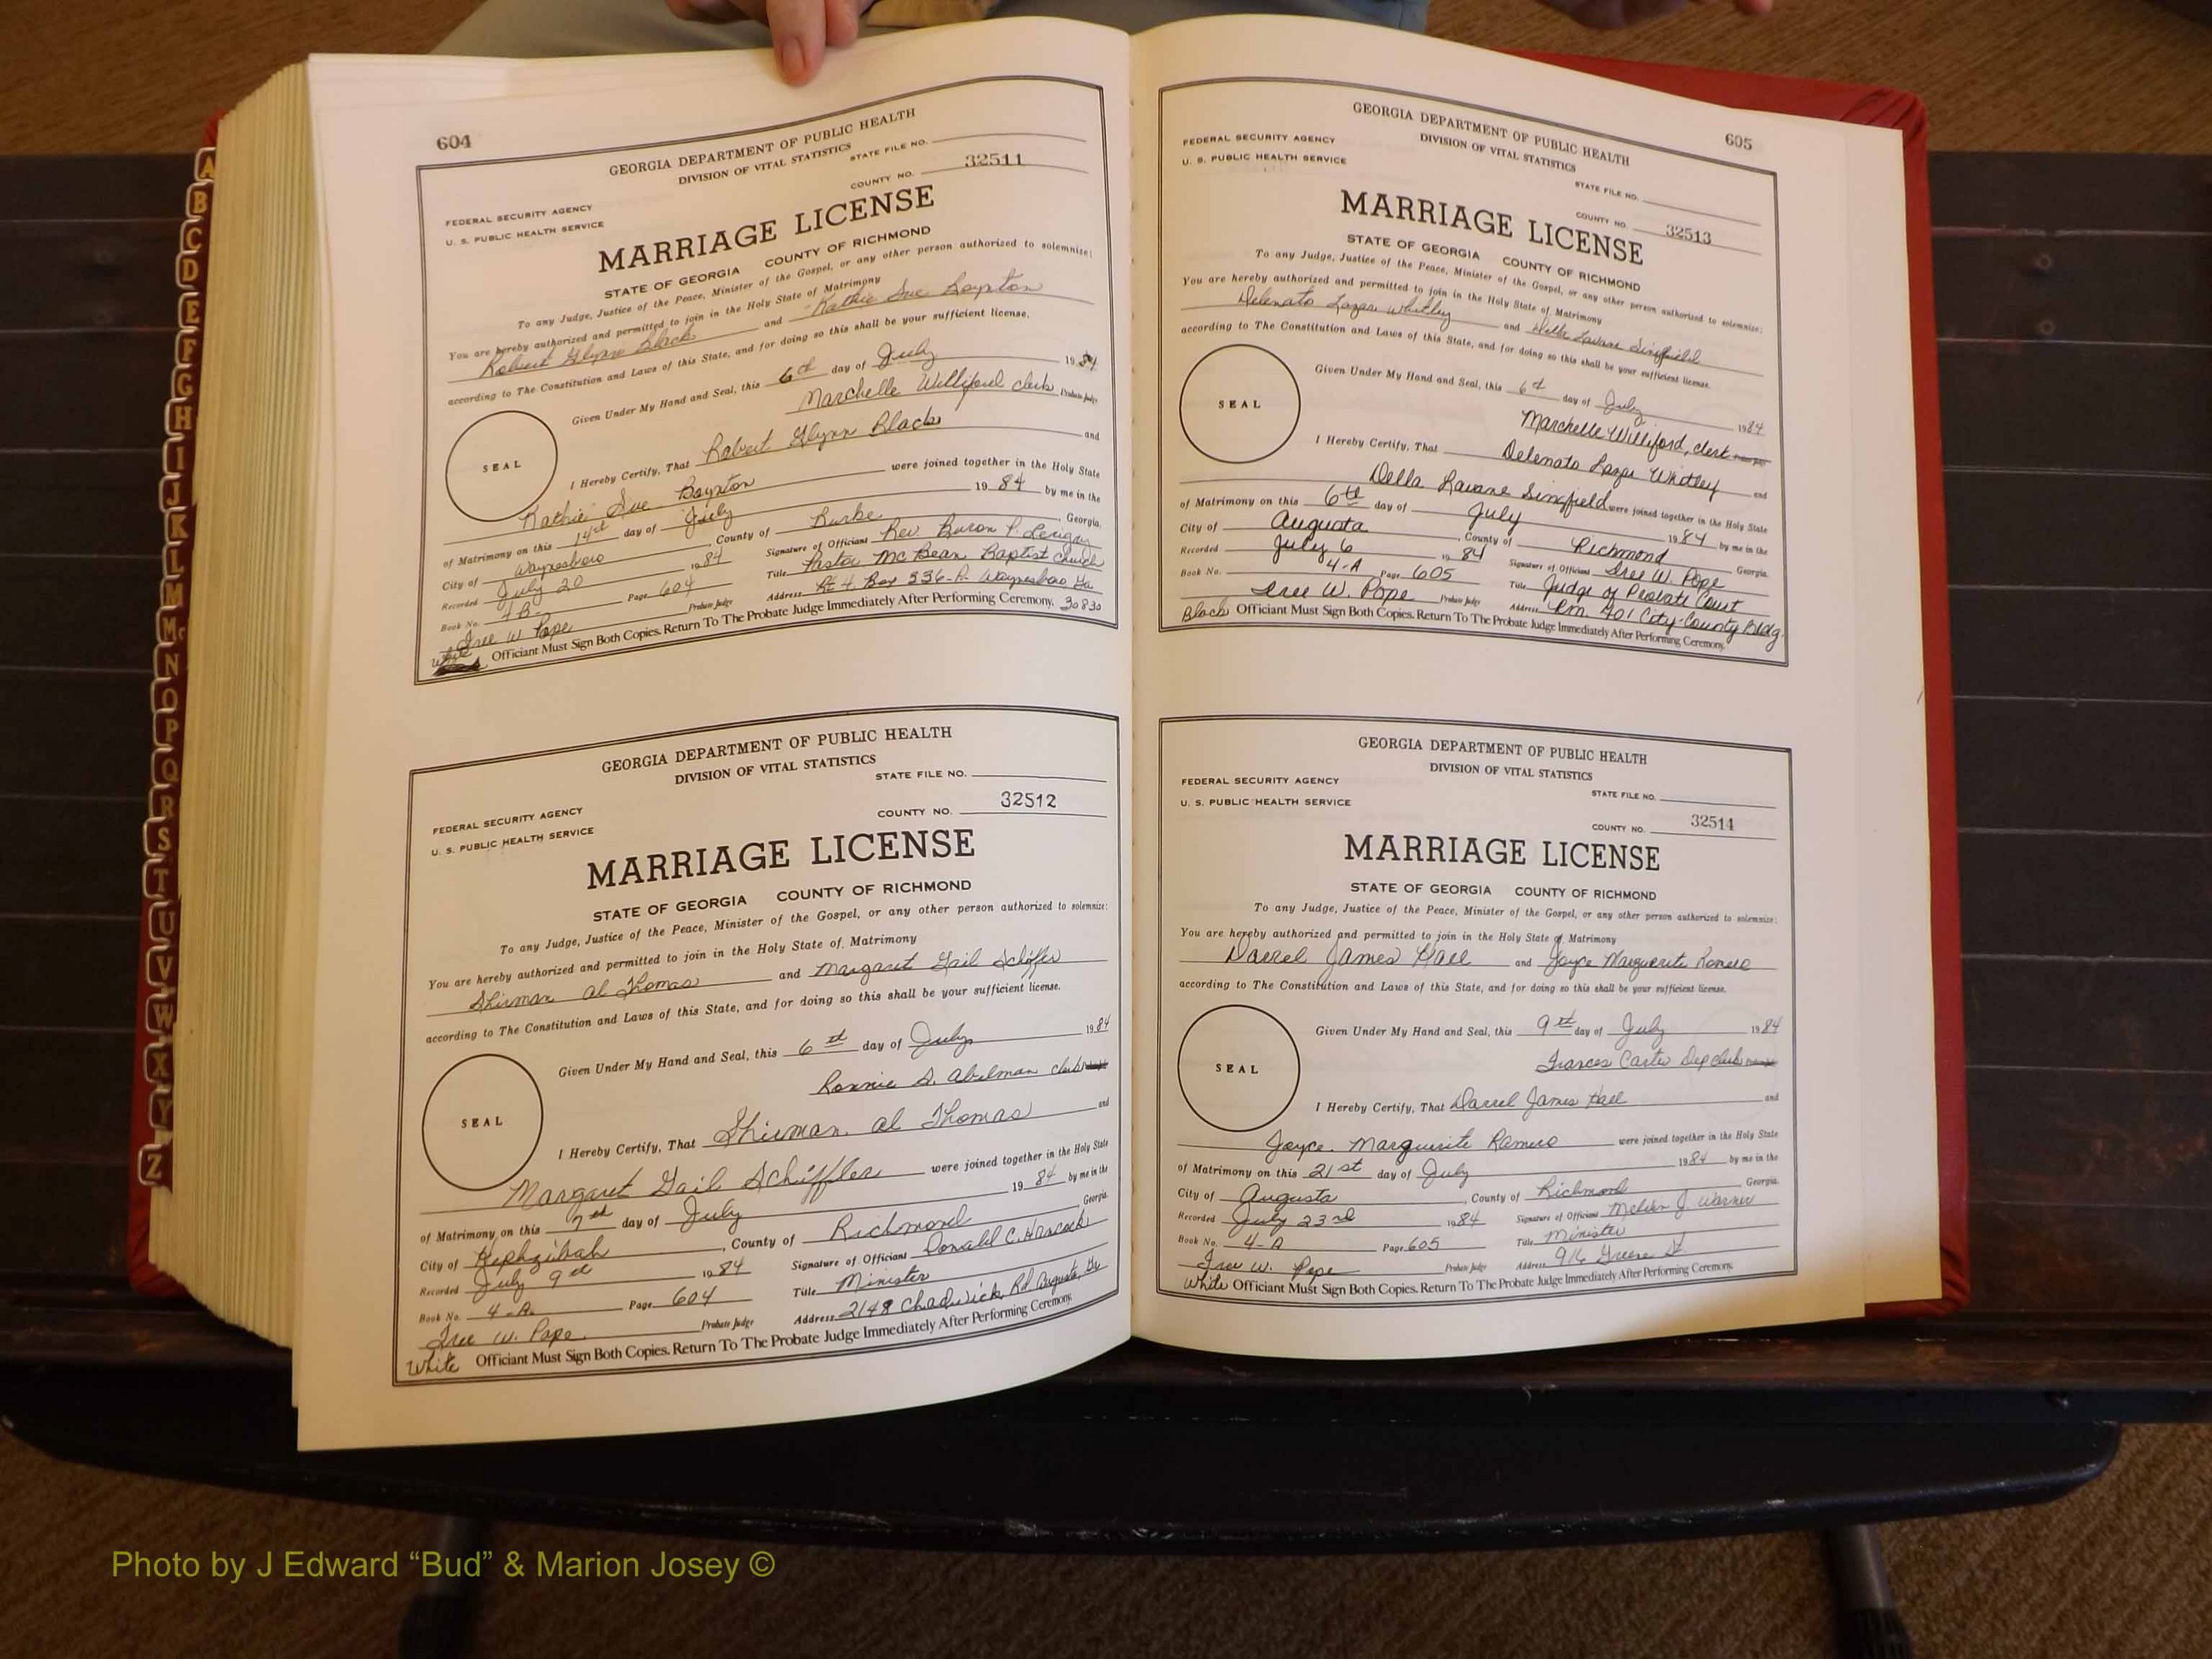 A
B
C
D
E
F
G
H
I
J
K
L
M
Mc
N
O
P
Q
R
S
T
U
V
W
X
Y
Z
604
GEORGIA DEPARTMENT OF PUBLIC HEALTH
DIVISION OF VITAL STATISTICS
STATE FILE NO.
COUNTY NO. 32511
FEDERAL SECURITY AGENCY
U. S. PUBLIC HEALTH SERVICE
MARRIAGE LICENSE
STATE OF GEORGIA COUNTY OF RICHMOND
To any Judge, Justice of the Peace, Minister of the Gospel, or any other person authorized to solemnize:
You are hereby authorized and permitted to join in the Holy State of Matrimony
Robert Glynn Black and Kathie Sue Boynton
according to The Constitution and Laws of this State, and for doing so this shall be your sufficient license.
Given Under My Hand and Seal, this 6th day of July 1984
Marchelle Williford clerk Probate Judge
SEAL
I Hereby Certify, That Robert Glynn Black and
Kathie Sue Boynton were joined together in the Holy State
of Matrimony on this 14th day of July 1984 by me in the
City of Waynesboro, County of Burke, Georgia.
Recorded July 20 1984 Signature of Officiant Rev. Buron P.
Book No. 4B Page 604 Title Pastor McBean Baptist Church
Iree W. Pope Probate Judge Address Rt 4 Box 336-A Waynesboro Ga
30830
White Officiant Must Sign Both Copies. Return To The Probate Judge Immediately After Performing Ceremony.
GEORGIA DEPARTMENT OF PUBLIC HEALTH
DIVISION OF VITAL STATISTICS
STATE FILE NO.
COUNTY NO. 32512
FEDERAL SECURITY AGENCY
U. S. PUBLIC HEALTH SERVICE
MARRIAGE LICENSE
STATE OF GEORGIA COUNTY OF RICHMOND
To any Judge, Justice of the Peace, Minister of the Gospel, or any other person authorized to solemnize:
You are hereby authorized and permitted to join in the Holy State of Matrimony
Shirman Al Thomas and Margaret Gail Schiffler
according to The Constitution and Laws of this State, and for doing so this shall be your sufficient license.
Given Under My Hand and Seal, this 6th day of July 1984
Ronnie S. Abelman clerk
SEAL
I Hereby Certify, That Shirman Al Thomas and
Margaret Gail Schiffler were joined together in the Holy State
of Matrimony on this 7th day of July 1984 by me in the
City of Hephzibah, County of Richmond Georgia.
Recorded July 9th 1984 Signature of Officiant Donald C. Hancock
Book No. 4-A Page 604 Title Minister
Iree W. Pope Probate Judge Address 2148 Chadwick Rd Augusta, Ga
White Officiant Must Sign Both Copies. Return To The Probate Judge Immediately After Performing Ceremony.
605
GEORGIA DEPARTMENT OF PUBLIC HEALTH
DIVISION OF VITAL STATISTICS
FEDERAL SECURITY AGENCY
U. S. PUBLIC HEALTH SERVICE
STATE FILE NO.
COUNTY NO. 32513
MARRIAGE LICENSE
STATE OF GEORGIA COUNTY OF RICHMOND
To any Judge, Justice of the Peace, Minister of the Gospel, or any other person authorized to solemnize:
You are hereby authorized and permitted to join in the Holy State of Matrimony
Delenato Lazar Whitley and Della Lavane Singfield
according to The Constitution and Laws of this State, and for doing so this shall be your sufficient license.
Given Under My Hand and Seal, this 6th day of July 1984
Marchelle Williford, clerk
SEAL
I Hereby Certify, That Delenato Lazar Whitley and
Della Lavane Singfield were joined together in the Holy State
of Matrimony on this 6th day of July 1984 by me in the
City of Augusta, County of Richmond Georgia.
Recorded July 6 1984 Signature of Officiant Iree W. Pope
Book No. 4-A Page 605 Title Judge of Probate Court
Iree W. Pope Probate Judge Address Rm. 401 City-County Bldg.
Black Officiant Must Sign Both Copies. Return To The Probate Judge Immediately After Performing Ceremony.
GEORGIA DEPARTMENT OF PUBLIC HEALTH
DIVISION OF VITAL STATISTICS
FEDERAL SECURITY AGENCY
U. S. PUBLIC HEALTH SERVICE
STATE FILE NO.
COUNTY NO. 32514
MARRIAGE LICENSE
STATE OF GEORGIA COUNTY OF RICHMOND
To any Judge, Justice of the Peace, Minister of the Gospel, or any other person authorized to solemnize:
You are hereby authorized and permitted to join in the Holy State of Matrimony
Darrel James Hall and Joyce Marguerite Romero
according to The Constitution and Laws of this State, and for doing so this shall be your sufficient license.
Given Under My Hand and Seal, this 9th day of July 1984
Frances Carter Dep clerk
SEAL
I Hereby Certify, That Darrel James Hall and
Joyce Marguerite Romero were joined together in the Holy State
of Matrimony on this 21st day of July 1984 by me in the
City of Augusta, County of Richmond Georgia.
Recorded July 23rd 1984 Signature of Officiant Melvin J. Warner
Book No. 4-A Page 605 Title Minister
Iree W. Pope Probate Judge Address 916 Greene St
White Officiant Must Sign Both Copies. Return To The Probate Judge Immediately After Performing Ceremony.
Photo by J Edward “Bud” & Marion Josey ©